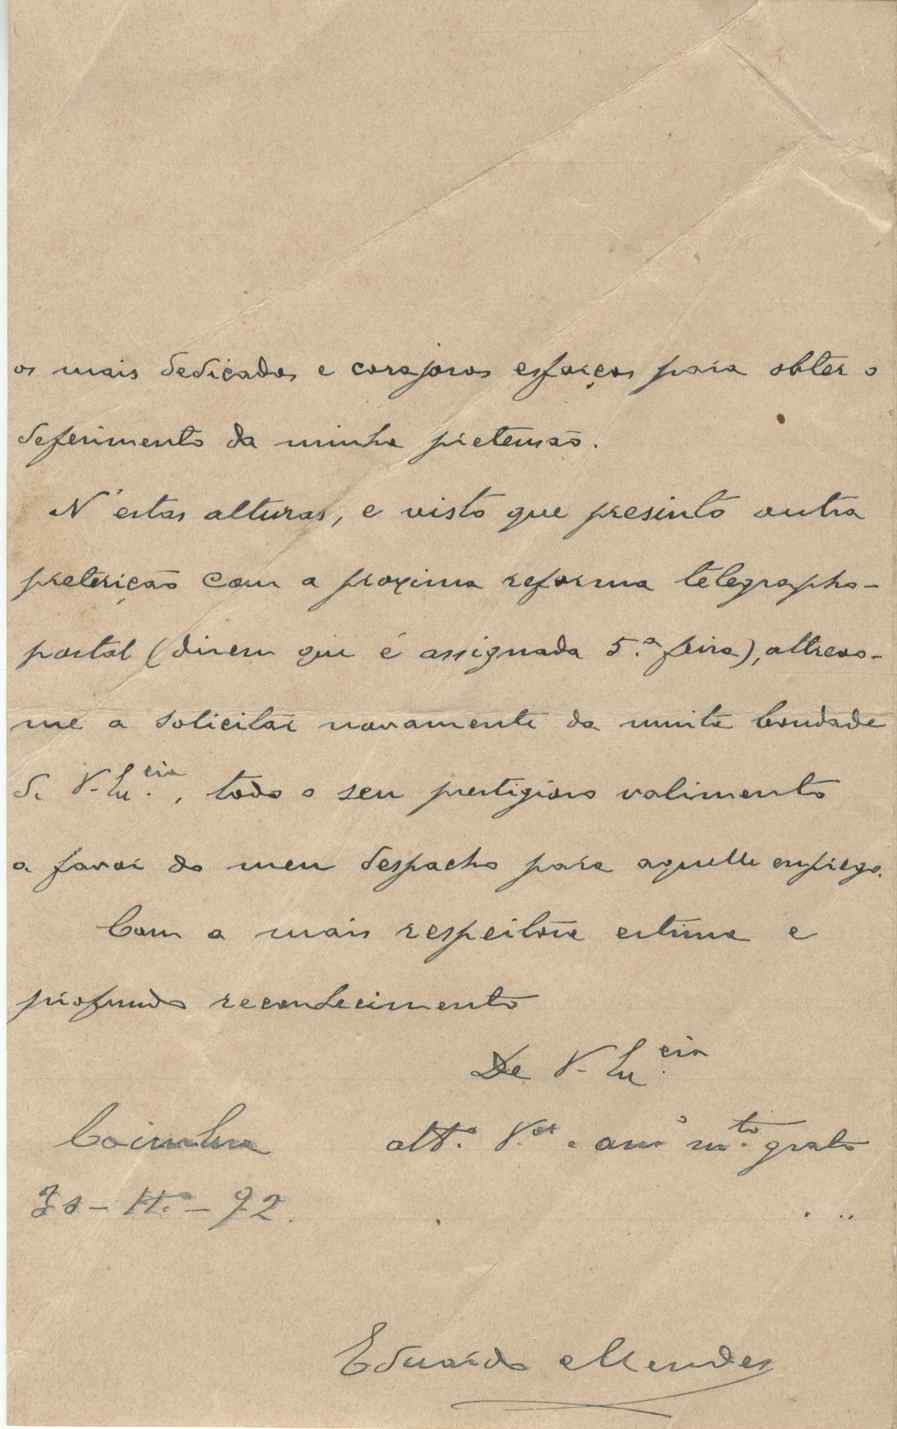 os mais dedicados e corajosos esforços para obter o
deferimento da minha pretensão.
N'estas alturas, e visto que presinto outra
preterição com a proxima reforma telegrapho-
postal (dizem que é assignada 5.ª feira), attrevo-
me a solicitar novamente da muita bondade
de V. Ex.cia, todo o seu prestigioso valimento
a favor do meu despacho para aquelle emprego.
Com a mais respeitosa estima e
profundo reconhecimento
De V. Ex.cia
att.º V.or e am.º m.to grato
Coimbra
30 - 11.º - 92.
Eduardo Mendes